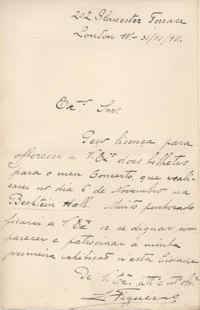 262 Gloucester Terrace
London W. 31/10/
Exmo Snr.
Peço licença para
offerecer a V. Exa dois bilhetes
para o meu Concerto, que reali-
sarei no dia 6 de Novembro na
Bechstein Hall. Muito penhorado
ficarei a V. Exa se se dignar com-
parecer e patrocinar a minha
primeira exhibição n'esta Season
De V. Exa. atto